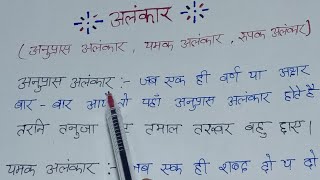 अलंकार
(अनुप्रास अलंकार, यमक अलंकार, रूपक अलंकार)
अनुप्रास अलंकार :- जब एक ही वर्ण या अक्षर
बार-बार वहाँ अनुप्रास अलंकार होते है
तरनि तनुजा तमाल तरुवर बहु छाए।
यमक अलंकार :- जब एक ही शब्द दो या दो